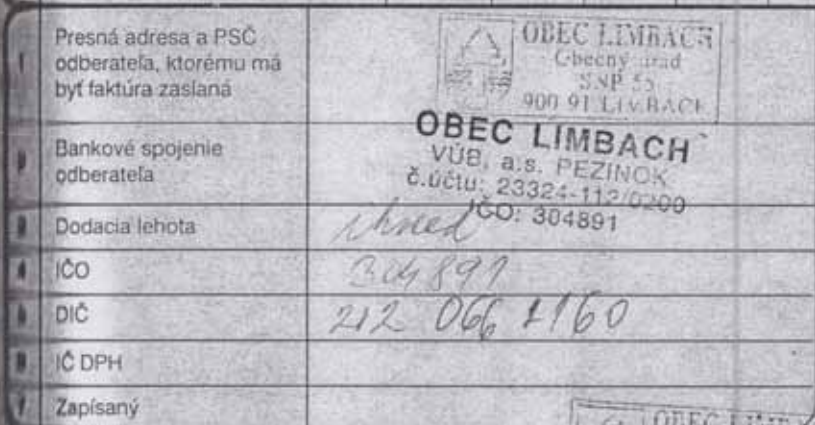 Presná adresa a PSČ
odberateľa, ktorému má
byť faktúra zaslaná
OBEC LIMBACH
Obecný úrad
SNP 55
900 91 LIMBACH
Bankové spojenie
odberateľa
OBEC LIMBACH
VÚB, a.s. PEZINOK
č.účtu: 23324-112/0200
IČO: 304891
Dodacia lehota
ihneď
IČO
304891
DIČ
212 066 1160
IČ DPH
Zapísaný
OBEC LIMBACH